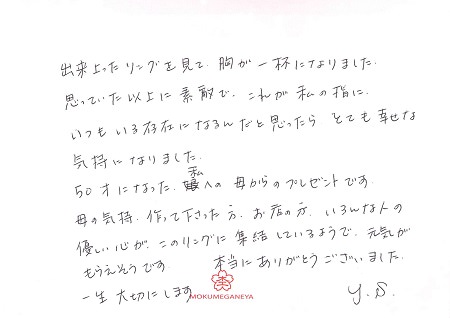 出来上ったリングを見て、胸が一杯になりました。
思っていた以上に素敵で、これが私の指に、
いつもいる存在になるんだと思ったら とても幸せな
気持になりました。
50才になった、私への 母からのプレゼントです。
母の気持、作って下さった方、お店の方、いろんな人の
優しい心が、このリングに集結しているようで、元気が
もらえそうです。 本当にありがとうございました。
一生大切にします
MOKUMEGANEYA
Y.S.